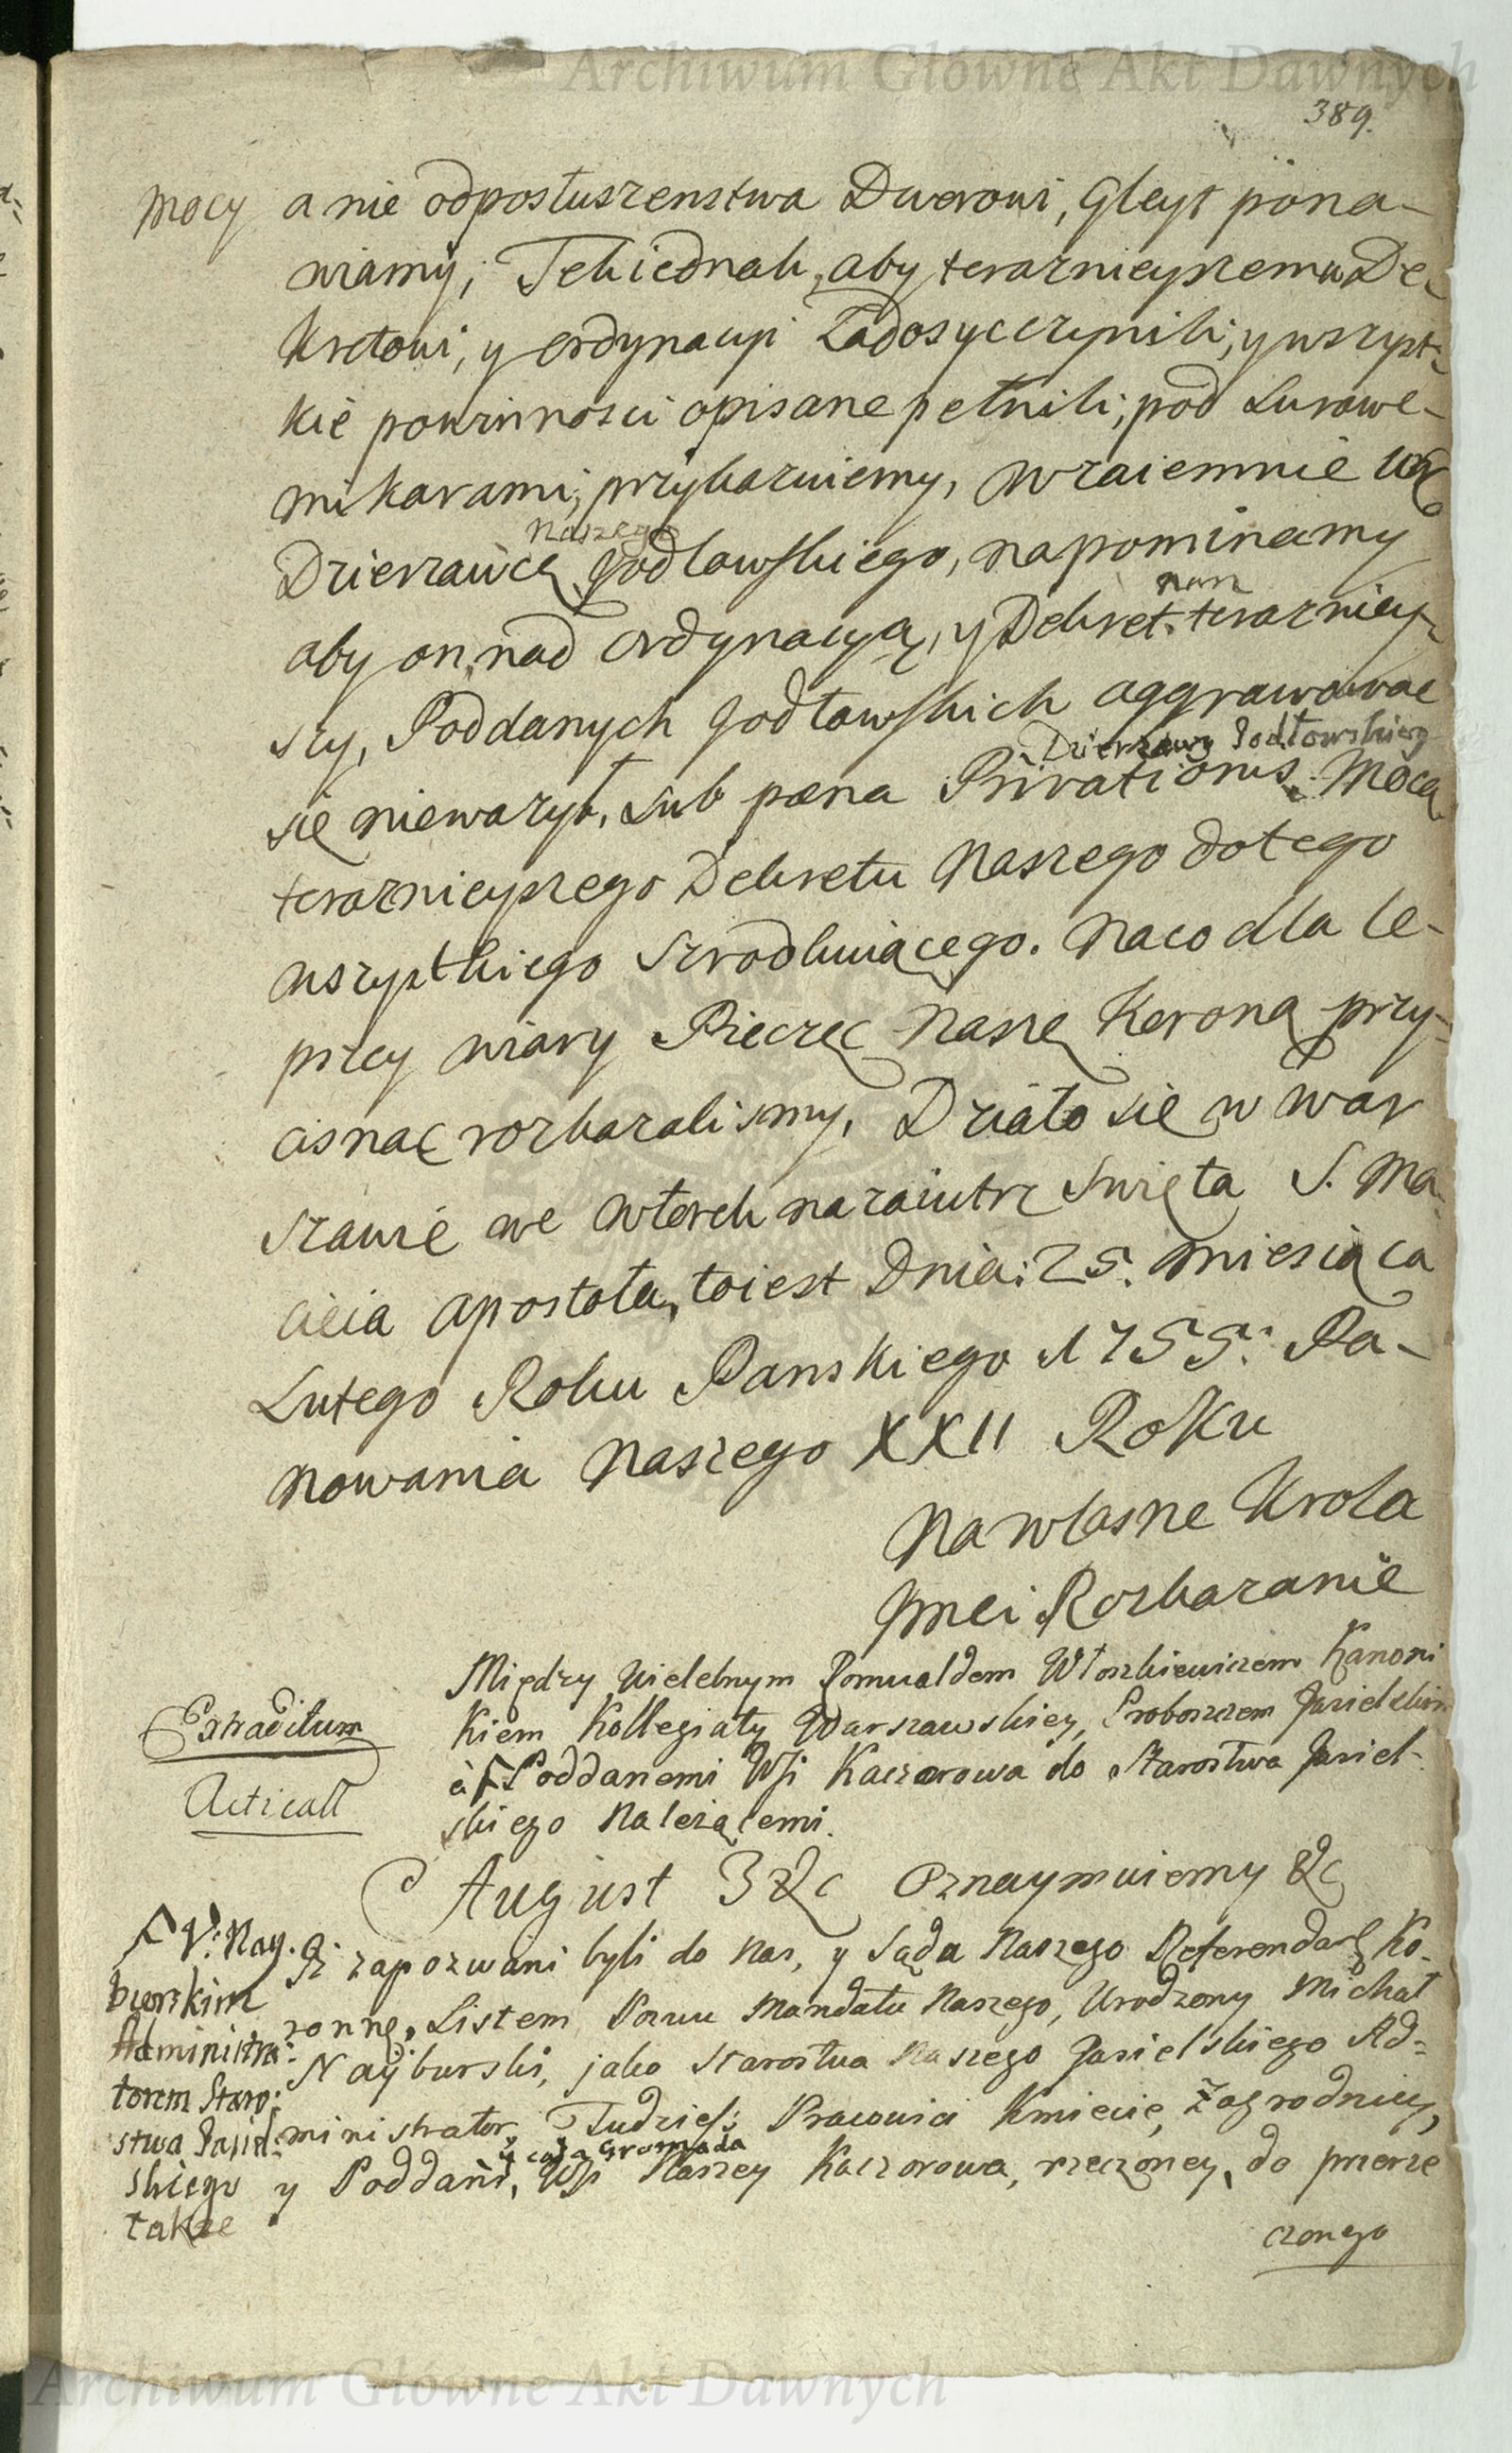 Archiwum Główne Akt Dawnych
389.
mocy a nie odposłuszenstwa Dworowi, Gleyt pona-
wiamy; Tekiednak, aby terazniejszemu De-
kretowi, y ordynacyi Zadosyc czynili, y wszyst-
kie powinnosci opisane pełnili, pod surowe-
mi karami, przykazuiemy, wzaiemnie
naszego
Dzierzawcę Jodłowskiego, napominamy
nasz
aby on, nad ordynacyą, y Dekret terazniey-
szy, Poddanych Jodłowskich aggrawowac
Dzierzawy Jodłowskiey
się nieważył, sub pœna Privationis Mocą
terazniejszego Dekretu Naszego do tego
wszystkiego szrodkuiącego. Na co dla le-
pszey wiary Pieczęc Naszę Koroną przy-
cisnąc rozkazalismy. Działo się w War
szawie we wtorek nazaiutrz Swięta S. Ma-
cieia apostoła, to iest Dnia: 25. Miesiąca
Lutego Roku Panskiego 1755: Pa-
nowania Naszego XXII Roku
Na własne Krola
Jmci Rozkazanie
Extraditum
Acticatt
Między Wielebnym Romualdem Włoszkiewiczem Kanoni
kiem Kollegiaty Warszawskiey, Proboszczem Jasielskim
à Poddanemi Wsi Kaczorowa do Starostwa Jasiel-
skiego Należącemi.
August 3 &c Oznaymuiemy &c
V: Nay-
burskim
Administra-
torem Staro-
stwa Jasiel-
skiego
takze
Iż zapozwani byli do Nas, y Sądu Naszego Referendars Ko-
ronnę, Listem Pozwu Mandatu Naszego, Urodzony Michał
Nayburski, jako Starostwa Naszego Jasielskiego Ad-
ministrator, Tudzież Pracowici Kmiecie, Zagrodnicy,
y cała Gromada
y Poddani, Wsi Naszey Kaczorowa, rzeczoney, do przerze
czonego
Archiwum Główne Akt Dawnych